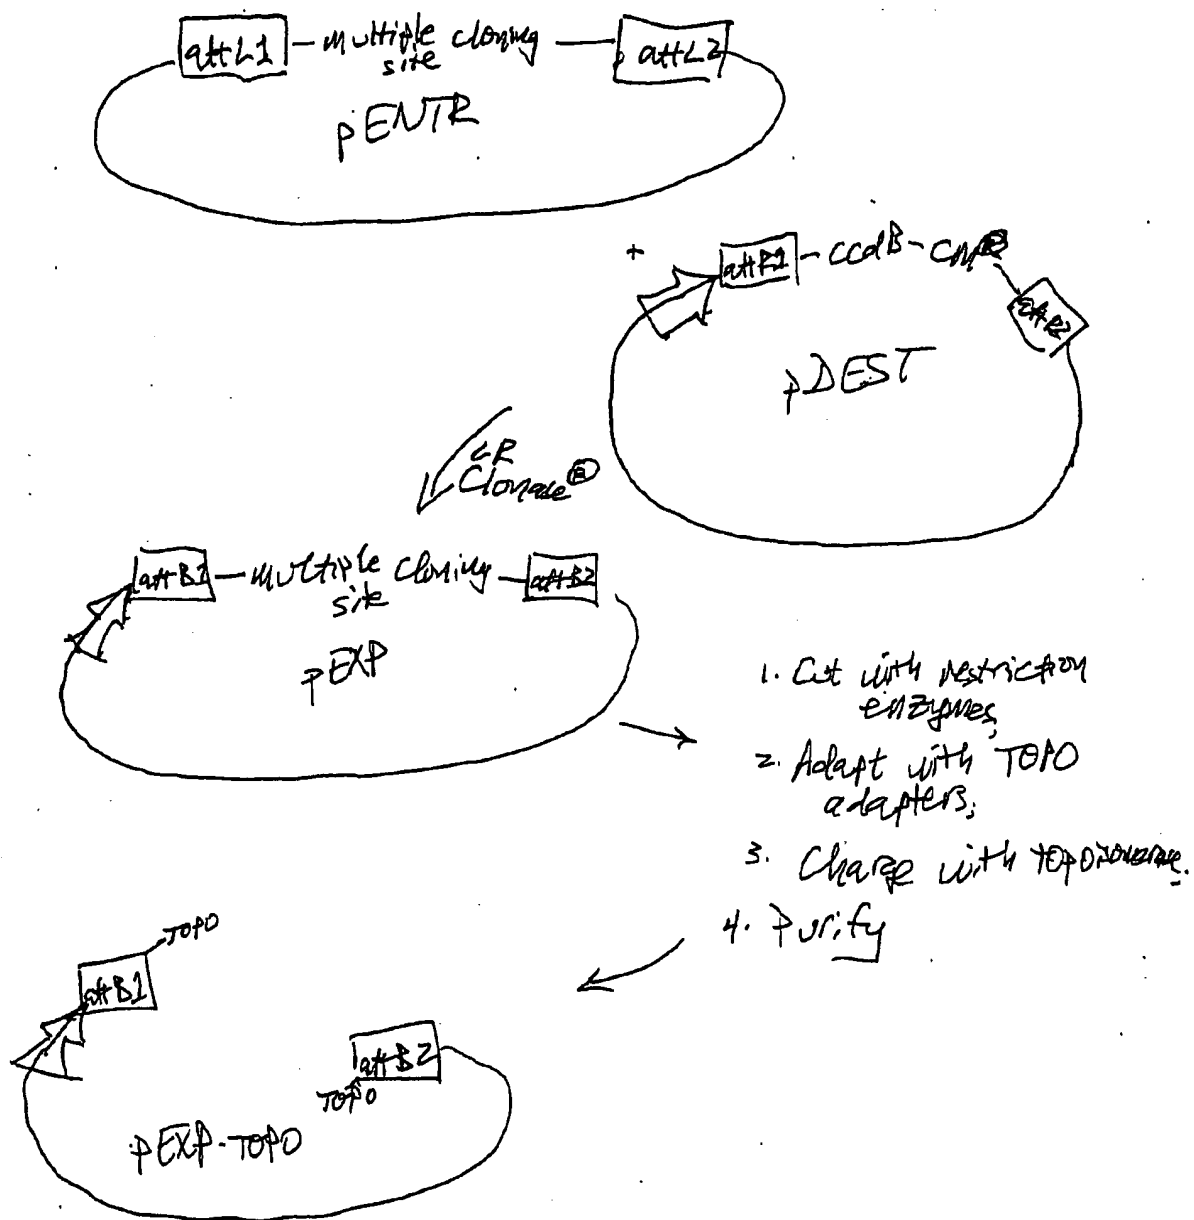 attL1 — multiple cloning — attL2
site
pENTR
+
attR1 - ccdB - CmR
attR2
pDEST
LR
Clonase®
attB1 — multiple cloning — attB2
site
pEXP
1. Cut with restriction
enzymes,
2. Adapt with TOPO
adapters,
3. Charge with topoisomerase.
4. Purify
TOPO
attB1
attB2
TOPO
pEXP-TOPO